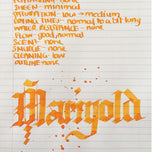 SHEEN - minimal
SATURATION - low - medium
DRYING TIMES - normal to a bit long
WATER RESISTANCE - none
FLOW - good, normal
SCENT - none
SMUDGE - none
CLEANING - low
OUTLINE - none
Marigold